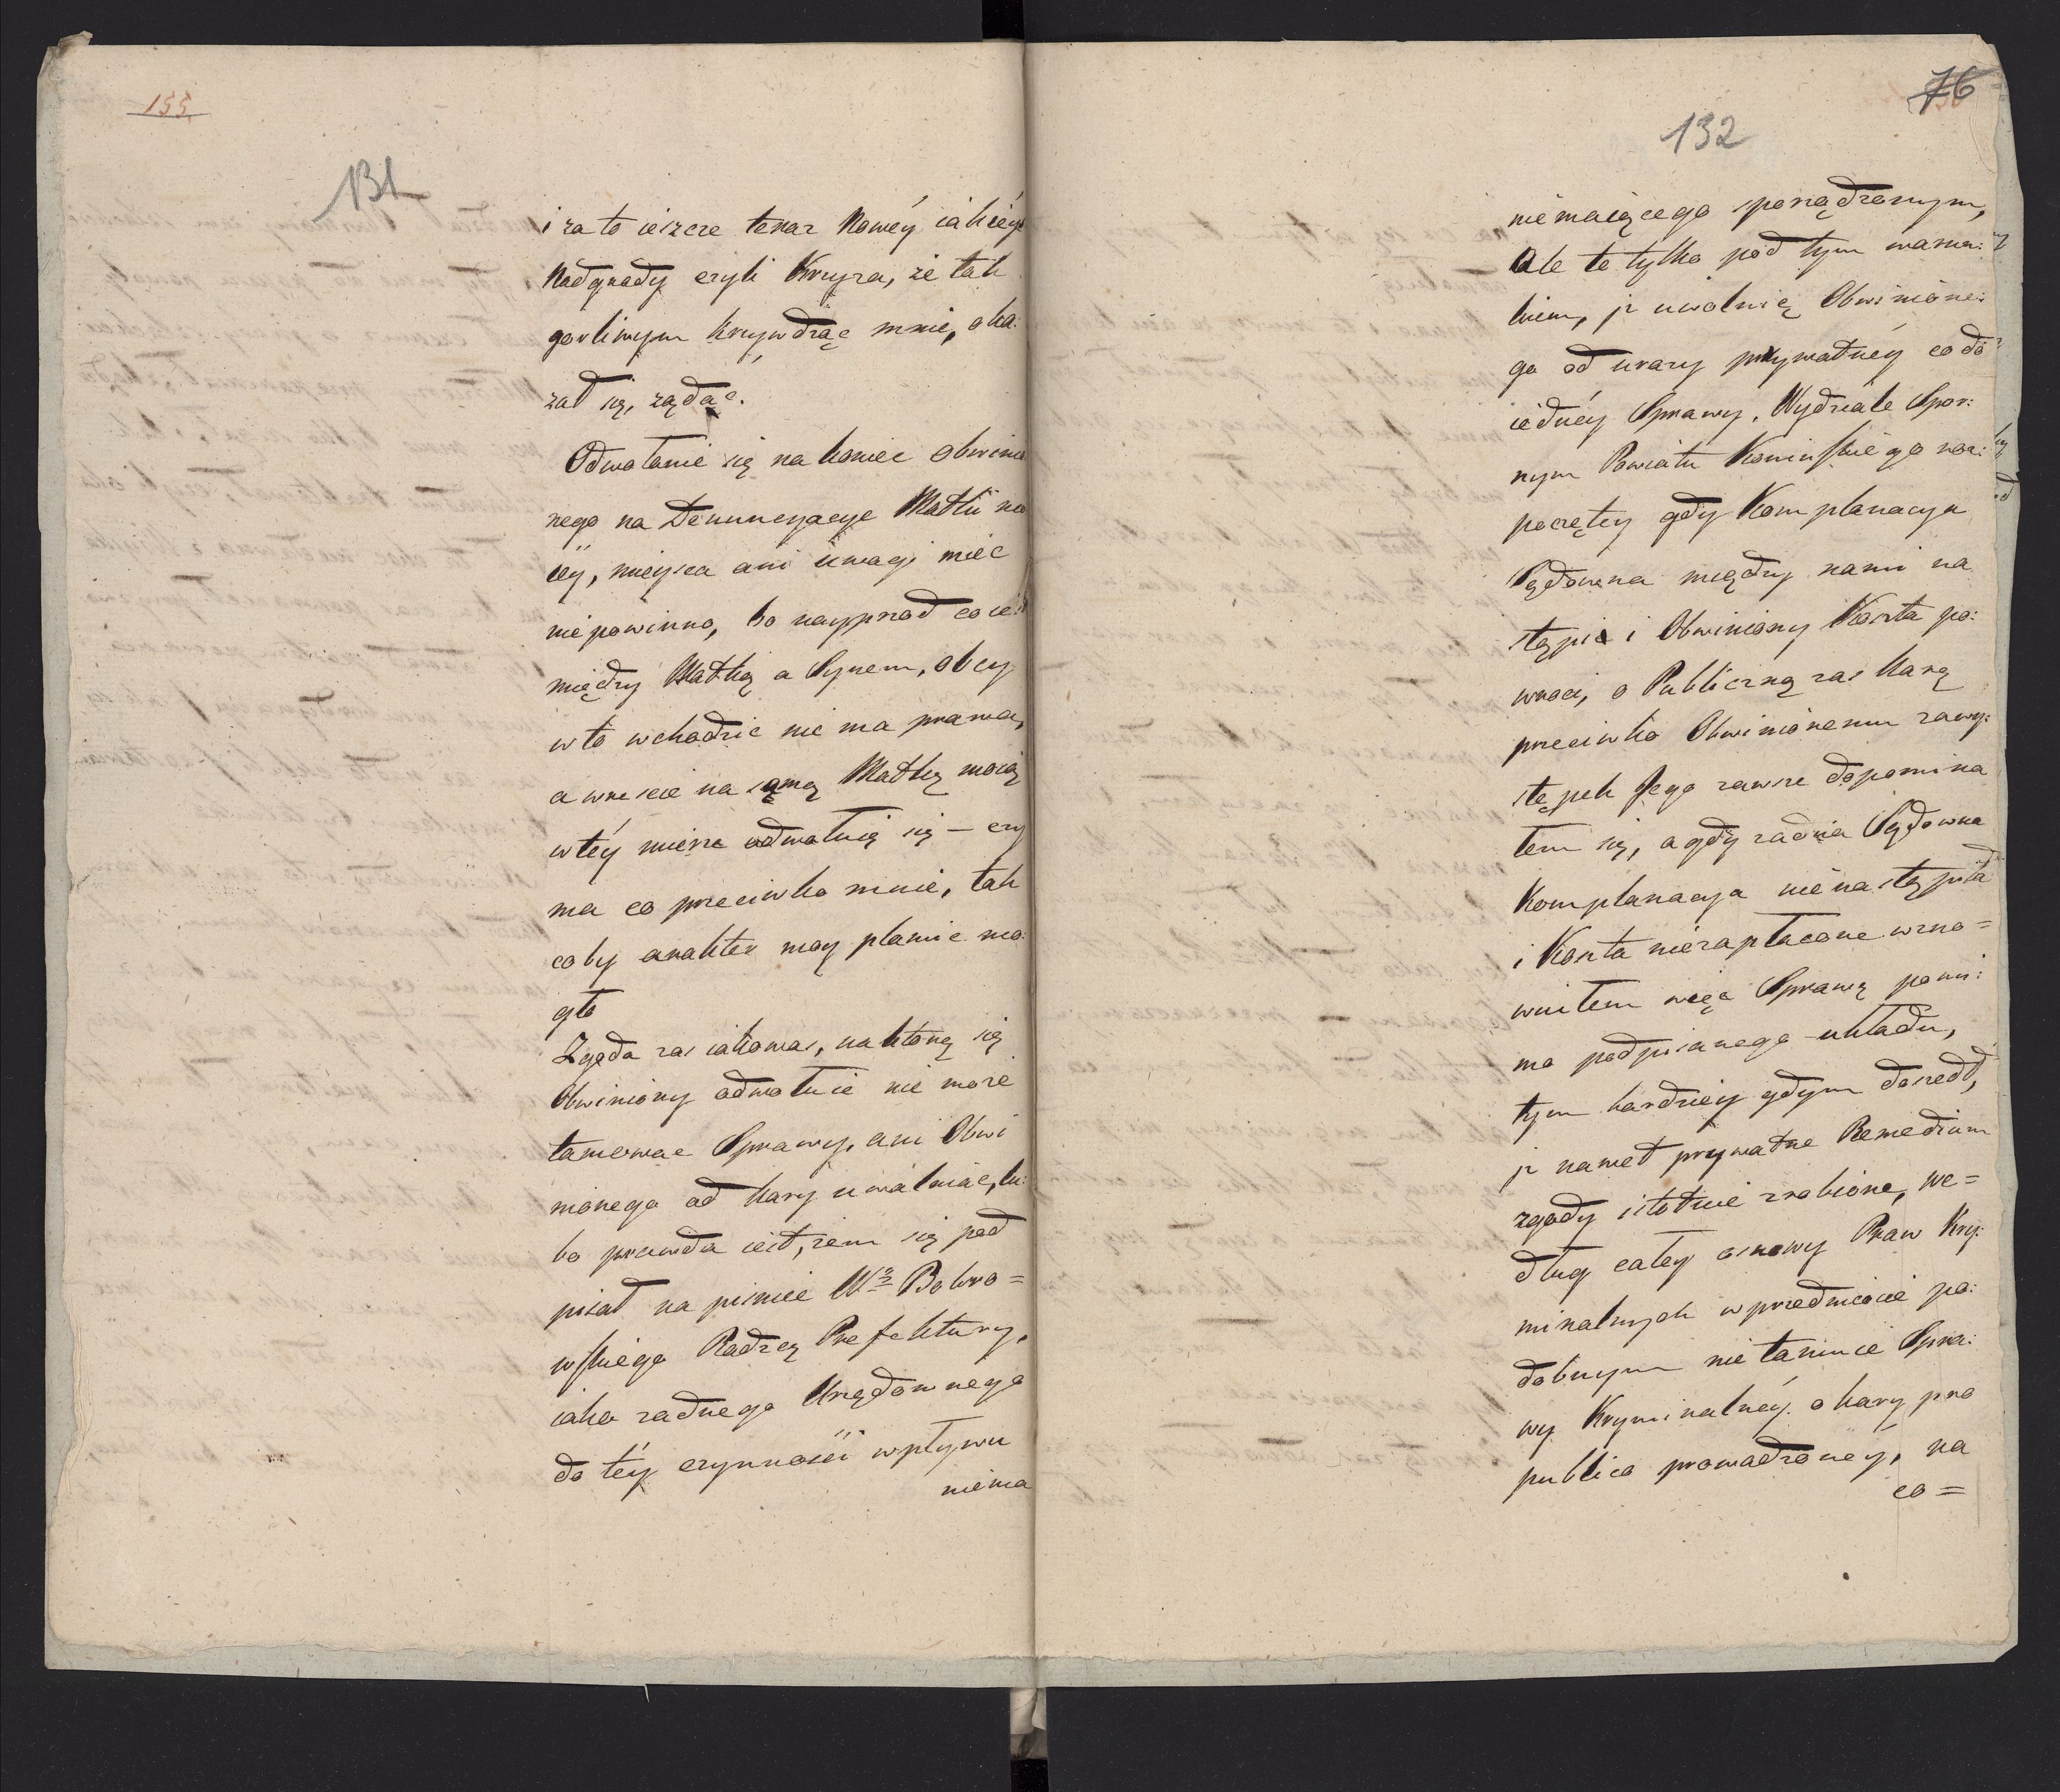 155
131
i za to ieszcze teraz Nowéy iakiéyś
Nadgrady czyli Krzyża, że tak
gorliwym krzywdząc mnie, oka:
zał się, żądać.
Odwołanie się na koniec obwinio
nego na Denuncyacye Matki mo
iey, mieysca ani uwagi mieć
niepowinno, bo nayprzod co iest
między Matką a Synem, obcy
w to wchodzić nie ma prawa,
a wreście na samą Matkę moią
w téy mierze odwołuię się – czy
ma co przeciwko mnie, tak
coby charakter moy plamić mo:
gło
Zgoda zaś iakowaś, na którą się
Obwiniony odwołuie nie może
tamować Sprawy, ani Obwi
nionego od kary uwalniać, lu:
bo prawda iest, żem się pod
pisał na piśmie W° Bobro=
wskiego Radzcy Prefektury,
iako żadnego Urzędownego
do téy czynności wpływu
niema
76
132
niemaiącego sporządzonym,
Ale to tylko pod tym warun:
kiem, iż uwolnię Obwinione:
go od urazy prywatnéy co do
iednéy Sprawy, Wydziale Spor:
nym Powiatu Konińskiego roz:
poczętey gdy Komplanacya
Sądowna między nami na
stąpi i Obwiniony Koszta po:
wróci, o Publiczną zaś karę
przeciwko Obwinionemu za wy:
stępek Jego zawsze dopomina
łem się, a gdy żadna Sądowna
Komplanacya nienastąpiła
i Koszta niezapłacone wzno=
wiłem więc Sprawę pomi:
mo podpisanego układu,
tym bardziey gdym doszedł,
iż nawet prywatne Remedium
zgody istotnie zrobione, we=
dług całey osnowy Praw Kry:
minalnych w przedmiocie po:
dobnym nie tamuie Spra:
wy Kryminalnéy o karę pro
publico prowadzonéy, na
co=